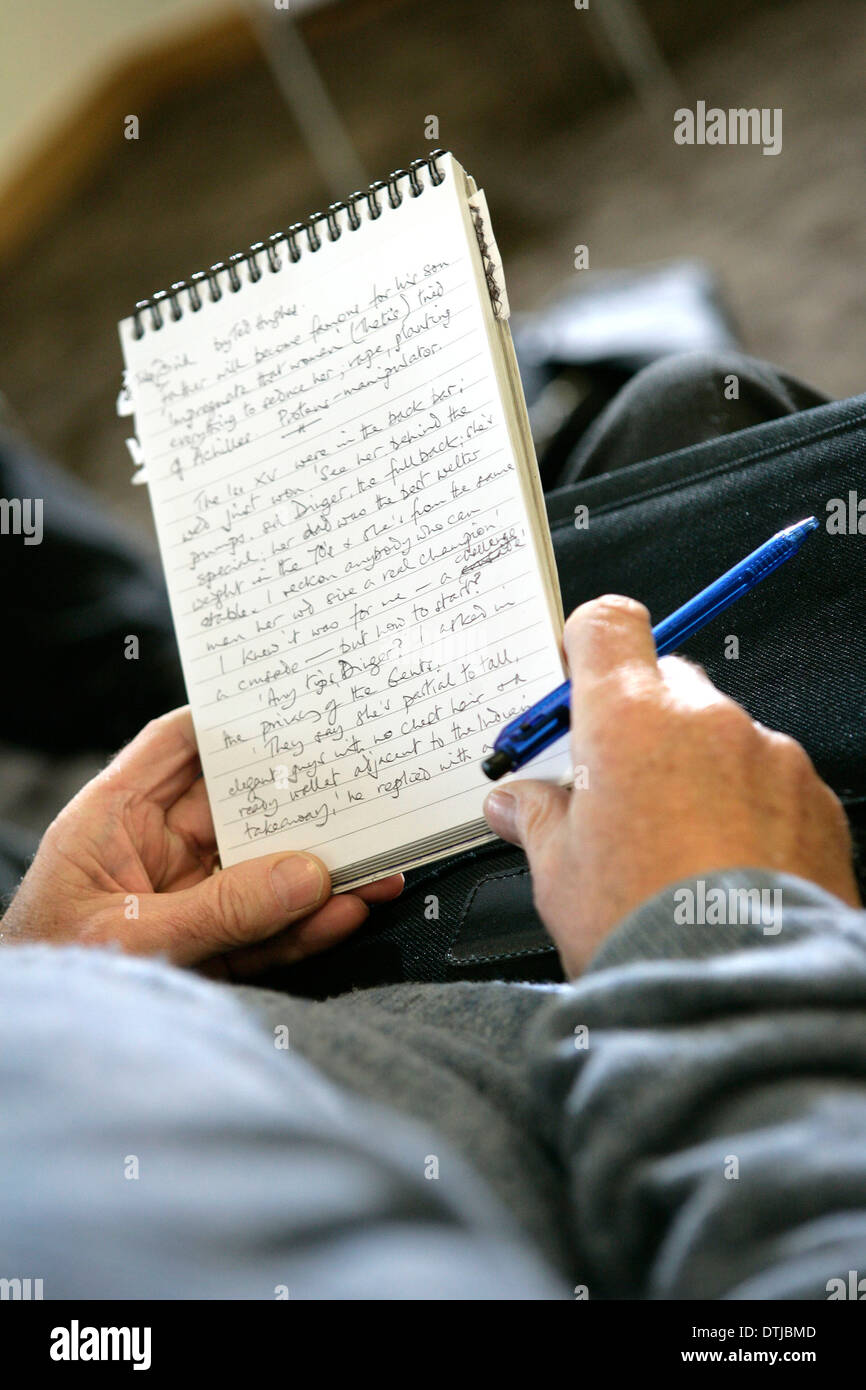 by Ted Hughes.
Father will become famous for his son
Impregnate that women (Thetis) tried
everything to seduce her, rage, planting
of Achilles. Proteus - manipulator.
The 1st XV were in the back bar;
we'd just won. 'See her behind the
pumps,' said Dinger, the fullback, 'she's
special; her dad was the best welter
weight in the 70's & she's from the same
stable. I reckon anybody who can
man her wd give a real champion.'
I knew it was for me – a challenge,
a crusade – but how to start?
'Any tips, Dinger?' I asked in
the privacy of the Gents.
'They say she's partial to tall,
elegant guys with no chest hair & a
ready wallet adjacent to the Indian
takeaway,' he replied with a
alamy
alamy
Image ID: DTJBMD
www.alamy.com